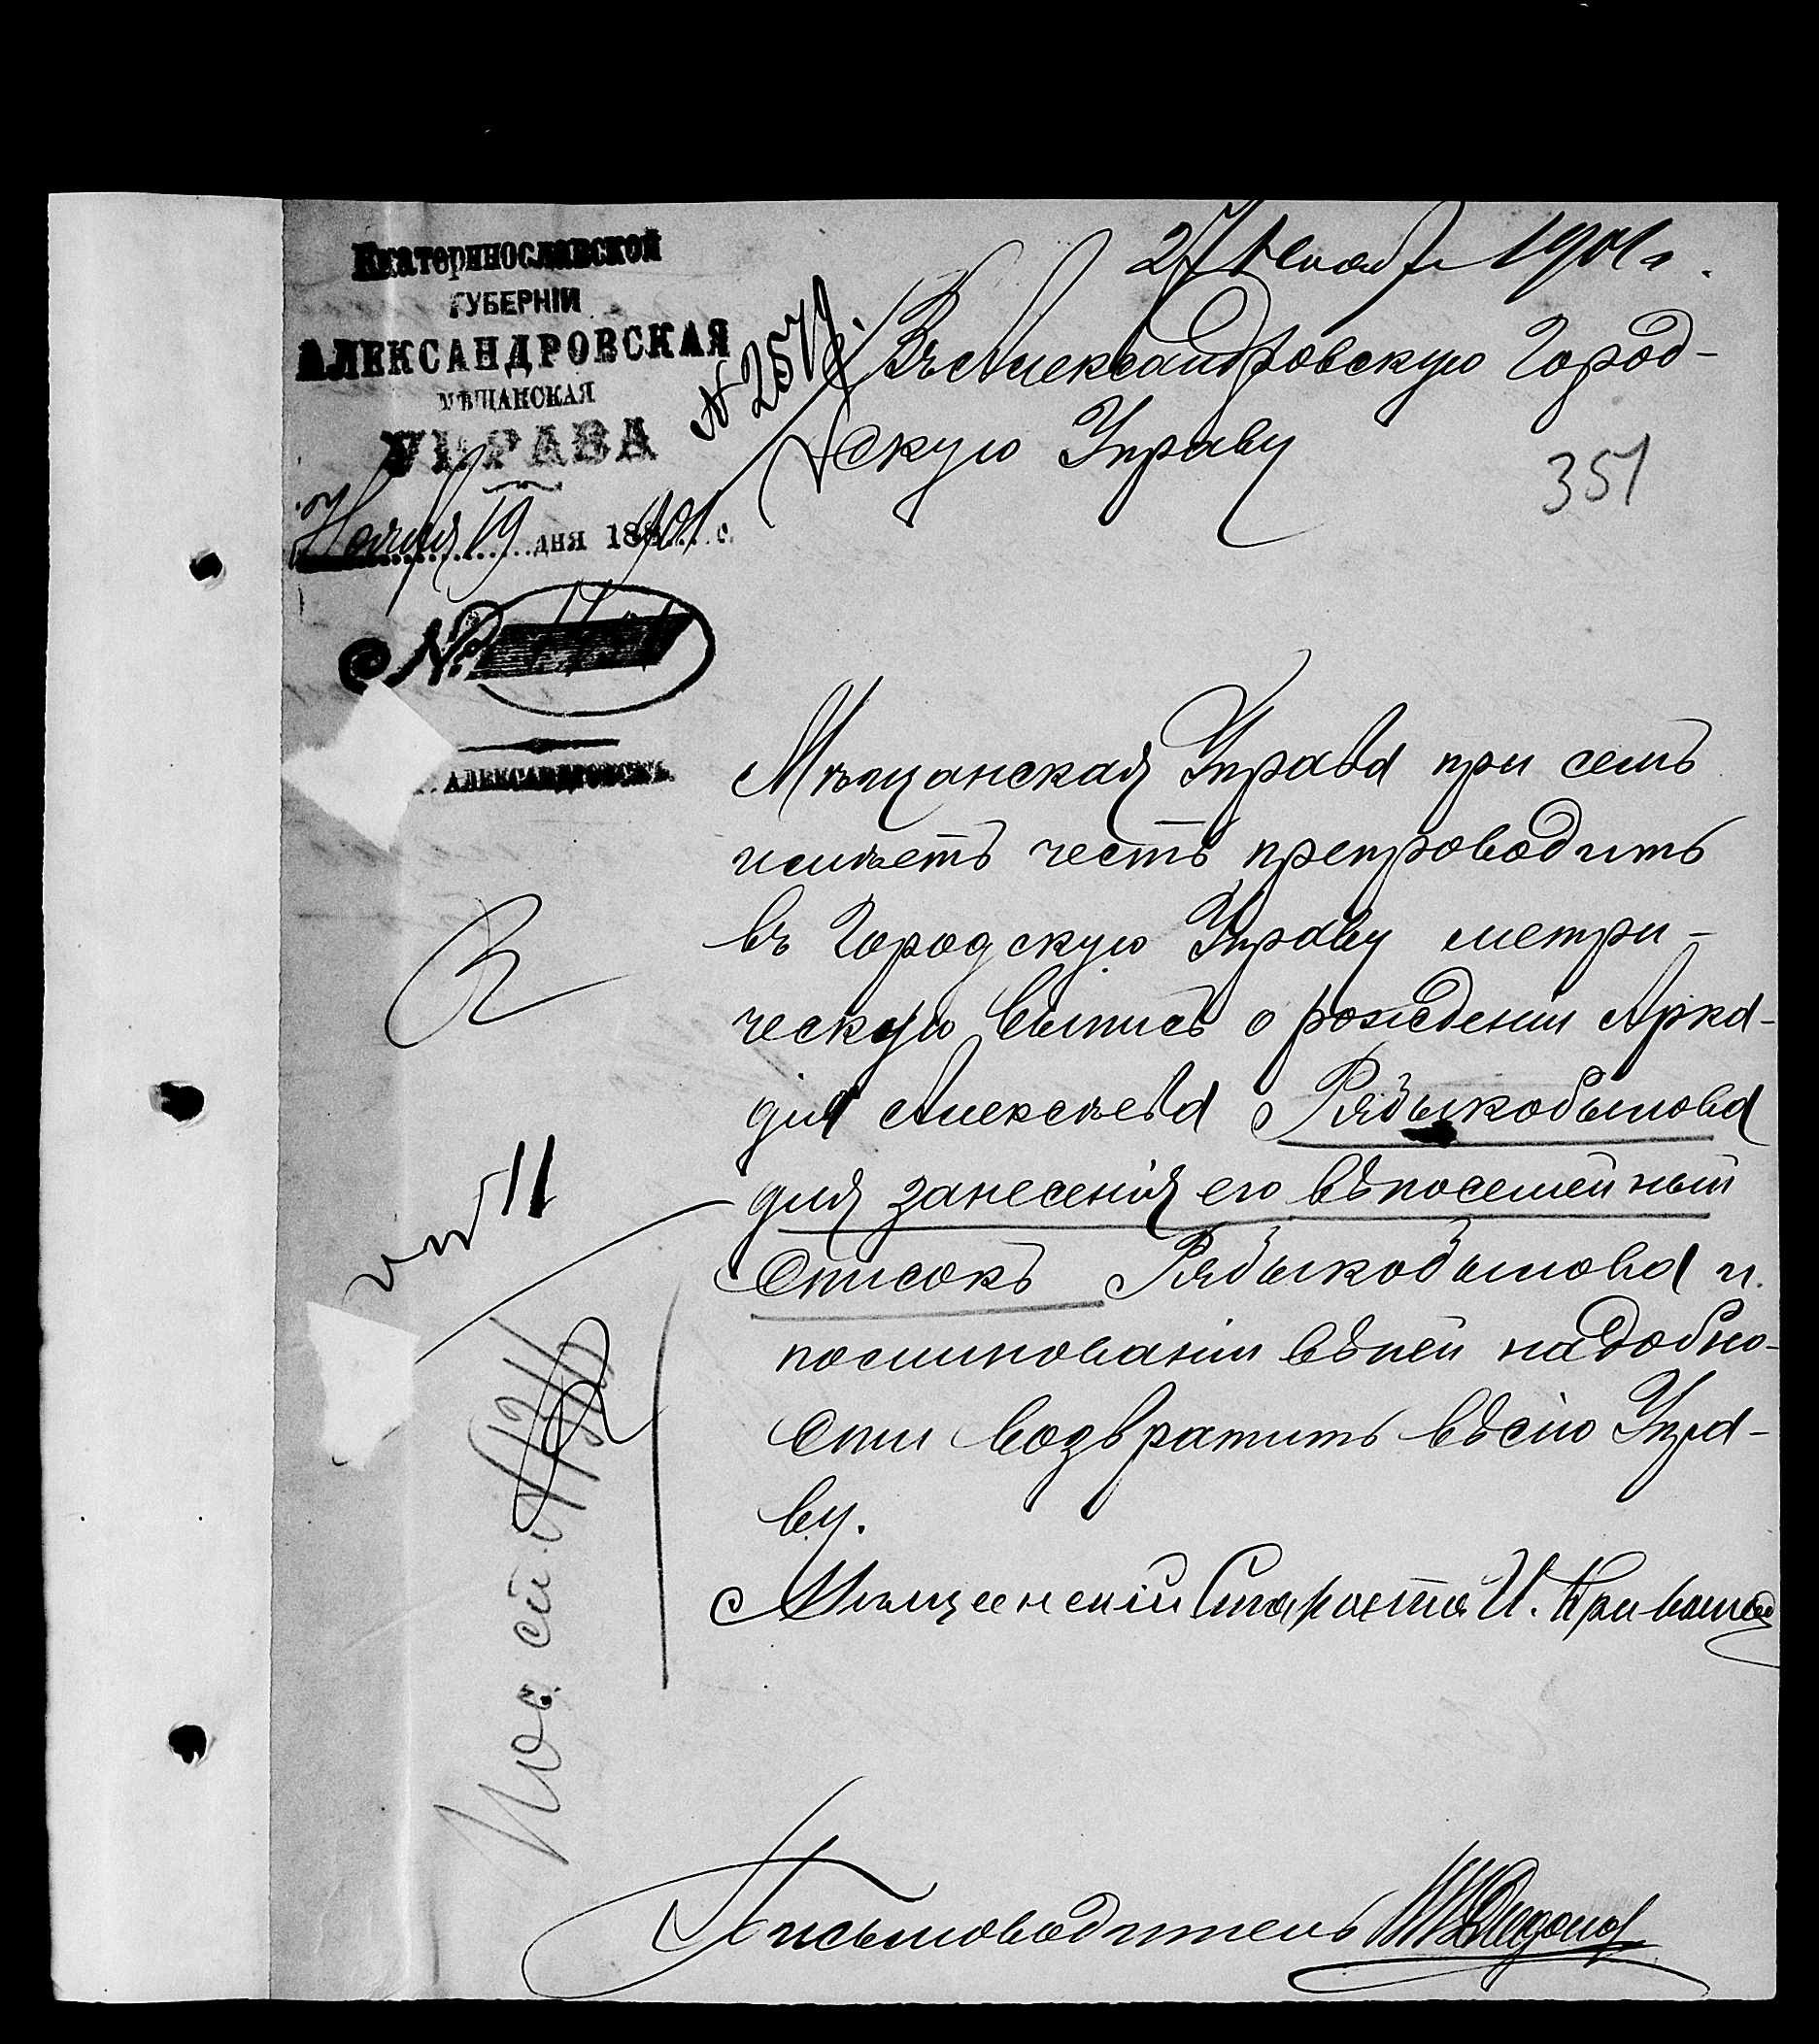 Екатеринославской
ГУБЕРНІИ
АЛЕКСАНДРОВСКАЯ
МѢЩАНСКАЯ
УПРАВА
Ноября 19 дня 1901 г.
№
г. АЛЕКСАНДРОВСКЪ.
27 Ноября 1901 г.
Въ Александровскую Город-
скую Управу
351
Мѣщанская Управа при семъ
имѣетъ честь препроводить
въ Городскую Управу метри-
ческую выпись о рожденіи Арка-
дія Алексѣева Рябыкобылова
для занесенія его въ посемейный
списокъ Рябыкобылова и
по минованіи въ ней надобно-
сти возвратить въ сію Упра-
ву.
Мѣщанскій Староста И.
Письмоводитель